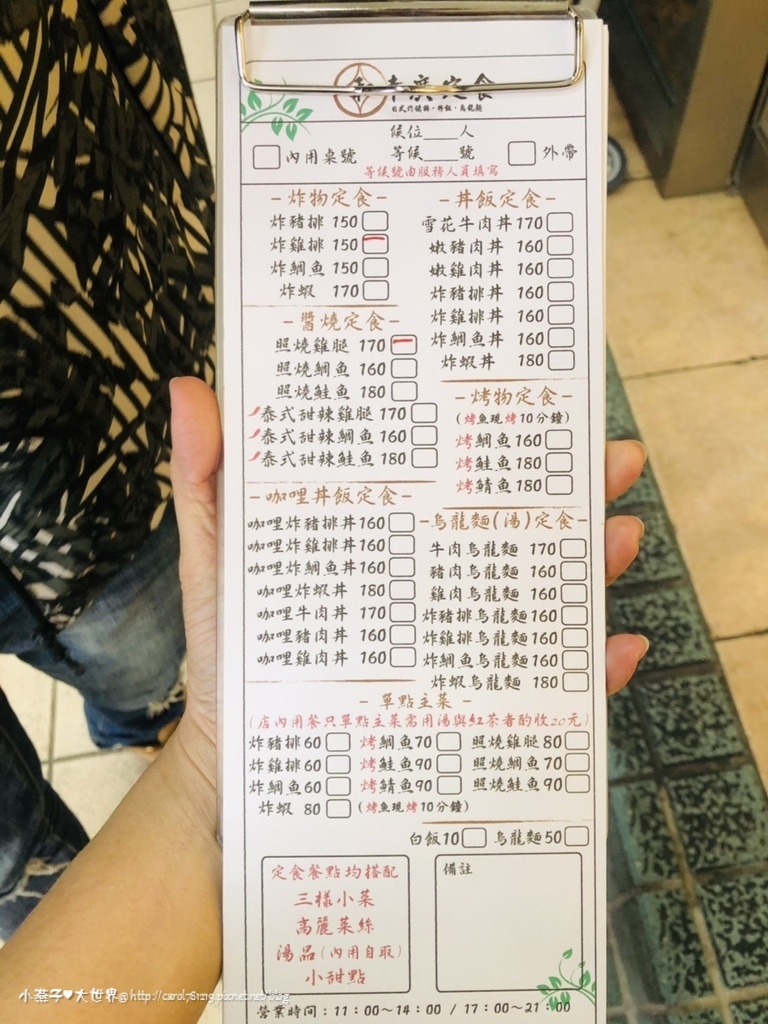 定食
日式炸豬排·丼飯·烏龍麵
候位___人
內用桌號
等候___號
外帶
等候號由服務人員填寫
-炸物定食-
炸豬排 150
炸雞排 150
炸鯛魚 150
炸蝦 170
-醬燒定食-
照燒雞腿 170
照燒鯛魚 160
照燒鮭魚 180
泰式甜辣雞腿 170
泰式甜辣鯛魚 160
泰式甜辣鮭魚 180
-咖哩丼飯定食-
咖哩炸豬排丼160
咖哩炸雞排丼160
咖哩炸鯛魚丼160
咖哩炸蝦丼 180
咖哩牛肉丼 170
咖哩豬肉丼 160
咖哩雞肉丼 160
-丼飯定食-
雪花牛肉丼170
嫩豬肉丼 160
嫩雞肉丼 160
炸豬排丼 160
炸雞排丼 160
炸鯛魚丼 160
炸蝦丼 180
-烤物定食-
(烤魚現烤10分鐘)
烤鯛魚160
烤鮭魚180
烤鯖魚160
-烏龍麵(湯)定食-
牛肉烏龍麵 170
豬肉烏龍麵 160
雞肉烏龍麵 160
炸豬排烏龍麵160
炸雞排烏龍麵160
炸鯛魚烏龍麵160
炸蝦烏龍麵 180
-單點主菜-
(店內用餐只單點主菜需用湯與紅茶者酌收20元)
炸豬排60 烤鯛魚70 照燒雞腿80
炸雞排60 烤鮭魚90 照燒鯛魚70
炸鯛魚60 烤鯖魚90 照燒鮭魚90
炸蝦 80 (烤魚現烤10分鐘)
白飯10 烏龍麵50
定食餐點均搭配
三樣小菜
高麗菜絲
湯品(內用自取)
小甜點
備註
營業時間:11:00~14:00 / 17:00~21:00
小燕子♥大世界@http://carol781219.pixnet.net/blog